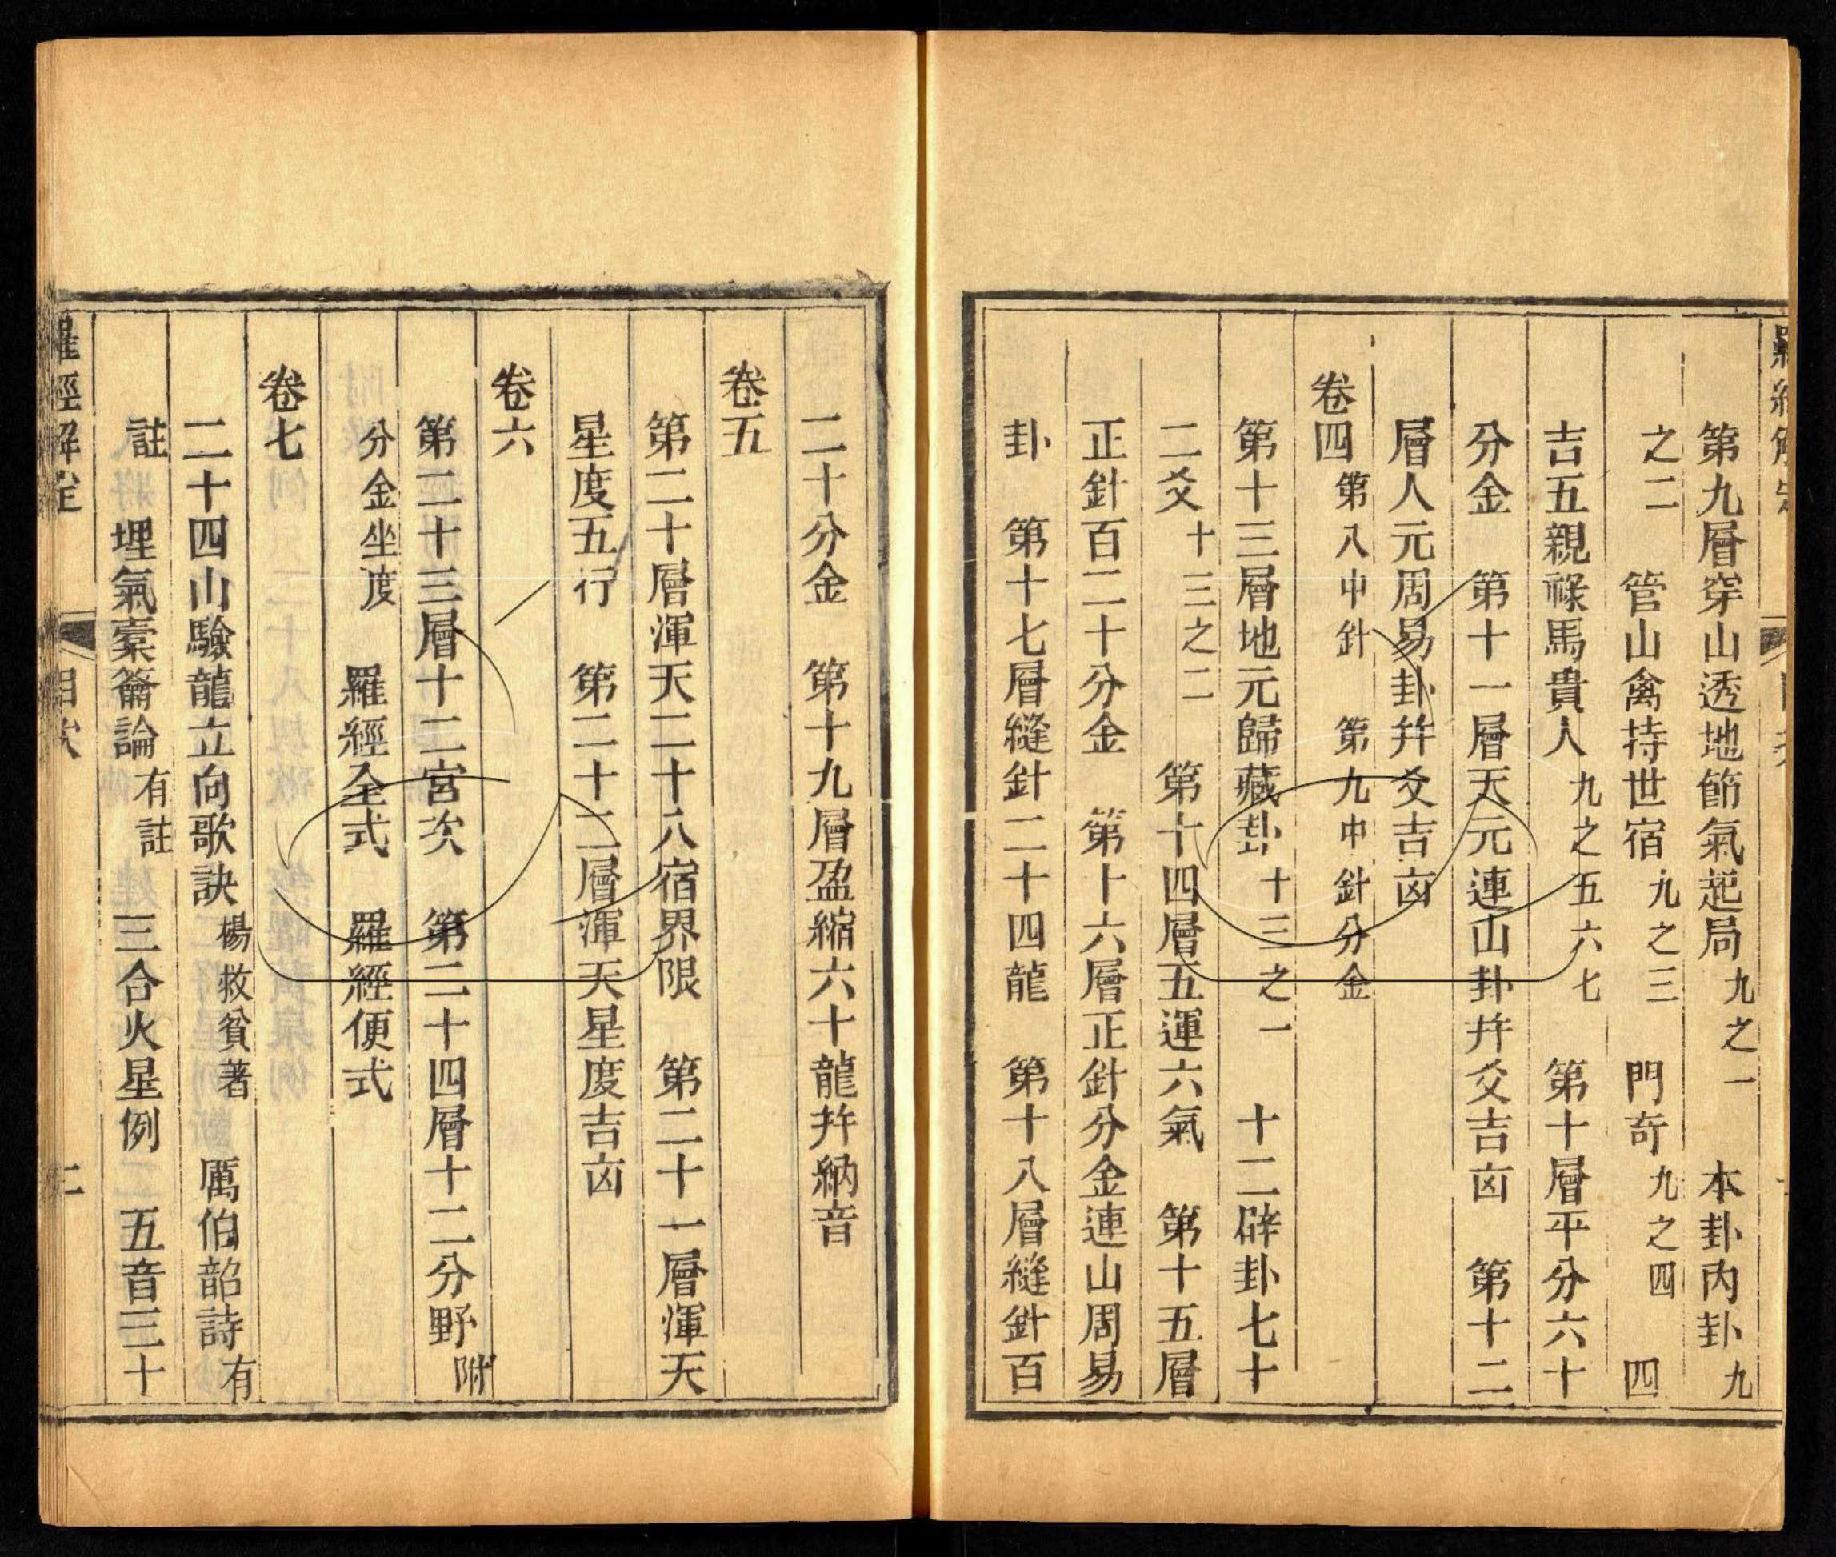 第九層穿山透地節氣起局九之一　本卦內卦九
之二　管山禽持世宿九之三　門奇九之四　四
吉五親祿馬貴人九之五六七　第十層平分六十
分金　第十一層天元連山卦并爻吉凶　第十二
層人元周易卦并爻吉凶
卷四第八中針　第九中針分金
第十三層地元歸藏卦十三之一　十二辟卦七十
二爻十三之二　第十四層五運六氣　第十五層
正針百二十分金　第十六層正針分金連山周易
卦　第十七層縫針二十四龍　第十八層縫針百
二十分金　第十九層盈縮六十龍并納音
卷五
第二十層渾天二十八宿界限　第二十一層渾天
星度五行　第二十二層渾天星度吉凶
卷六
第二十三層十二宮次　第二十四層十二分野附
分金坐度　羅經全式　羅經便式
卷七
二十四山驗龍立向歌訣楊救貧著　厲伯韶詩有
註　埋氣橐籥論有註　三合火星例　五音三十
羅經解定　目次　二